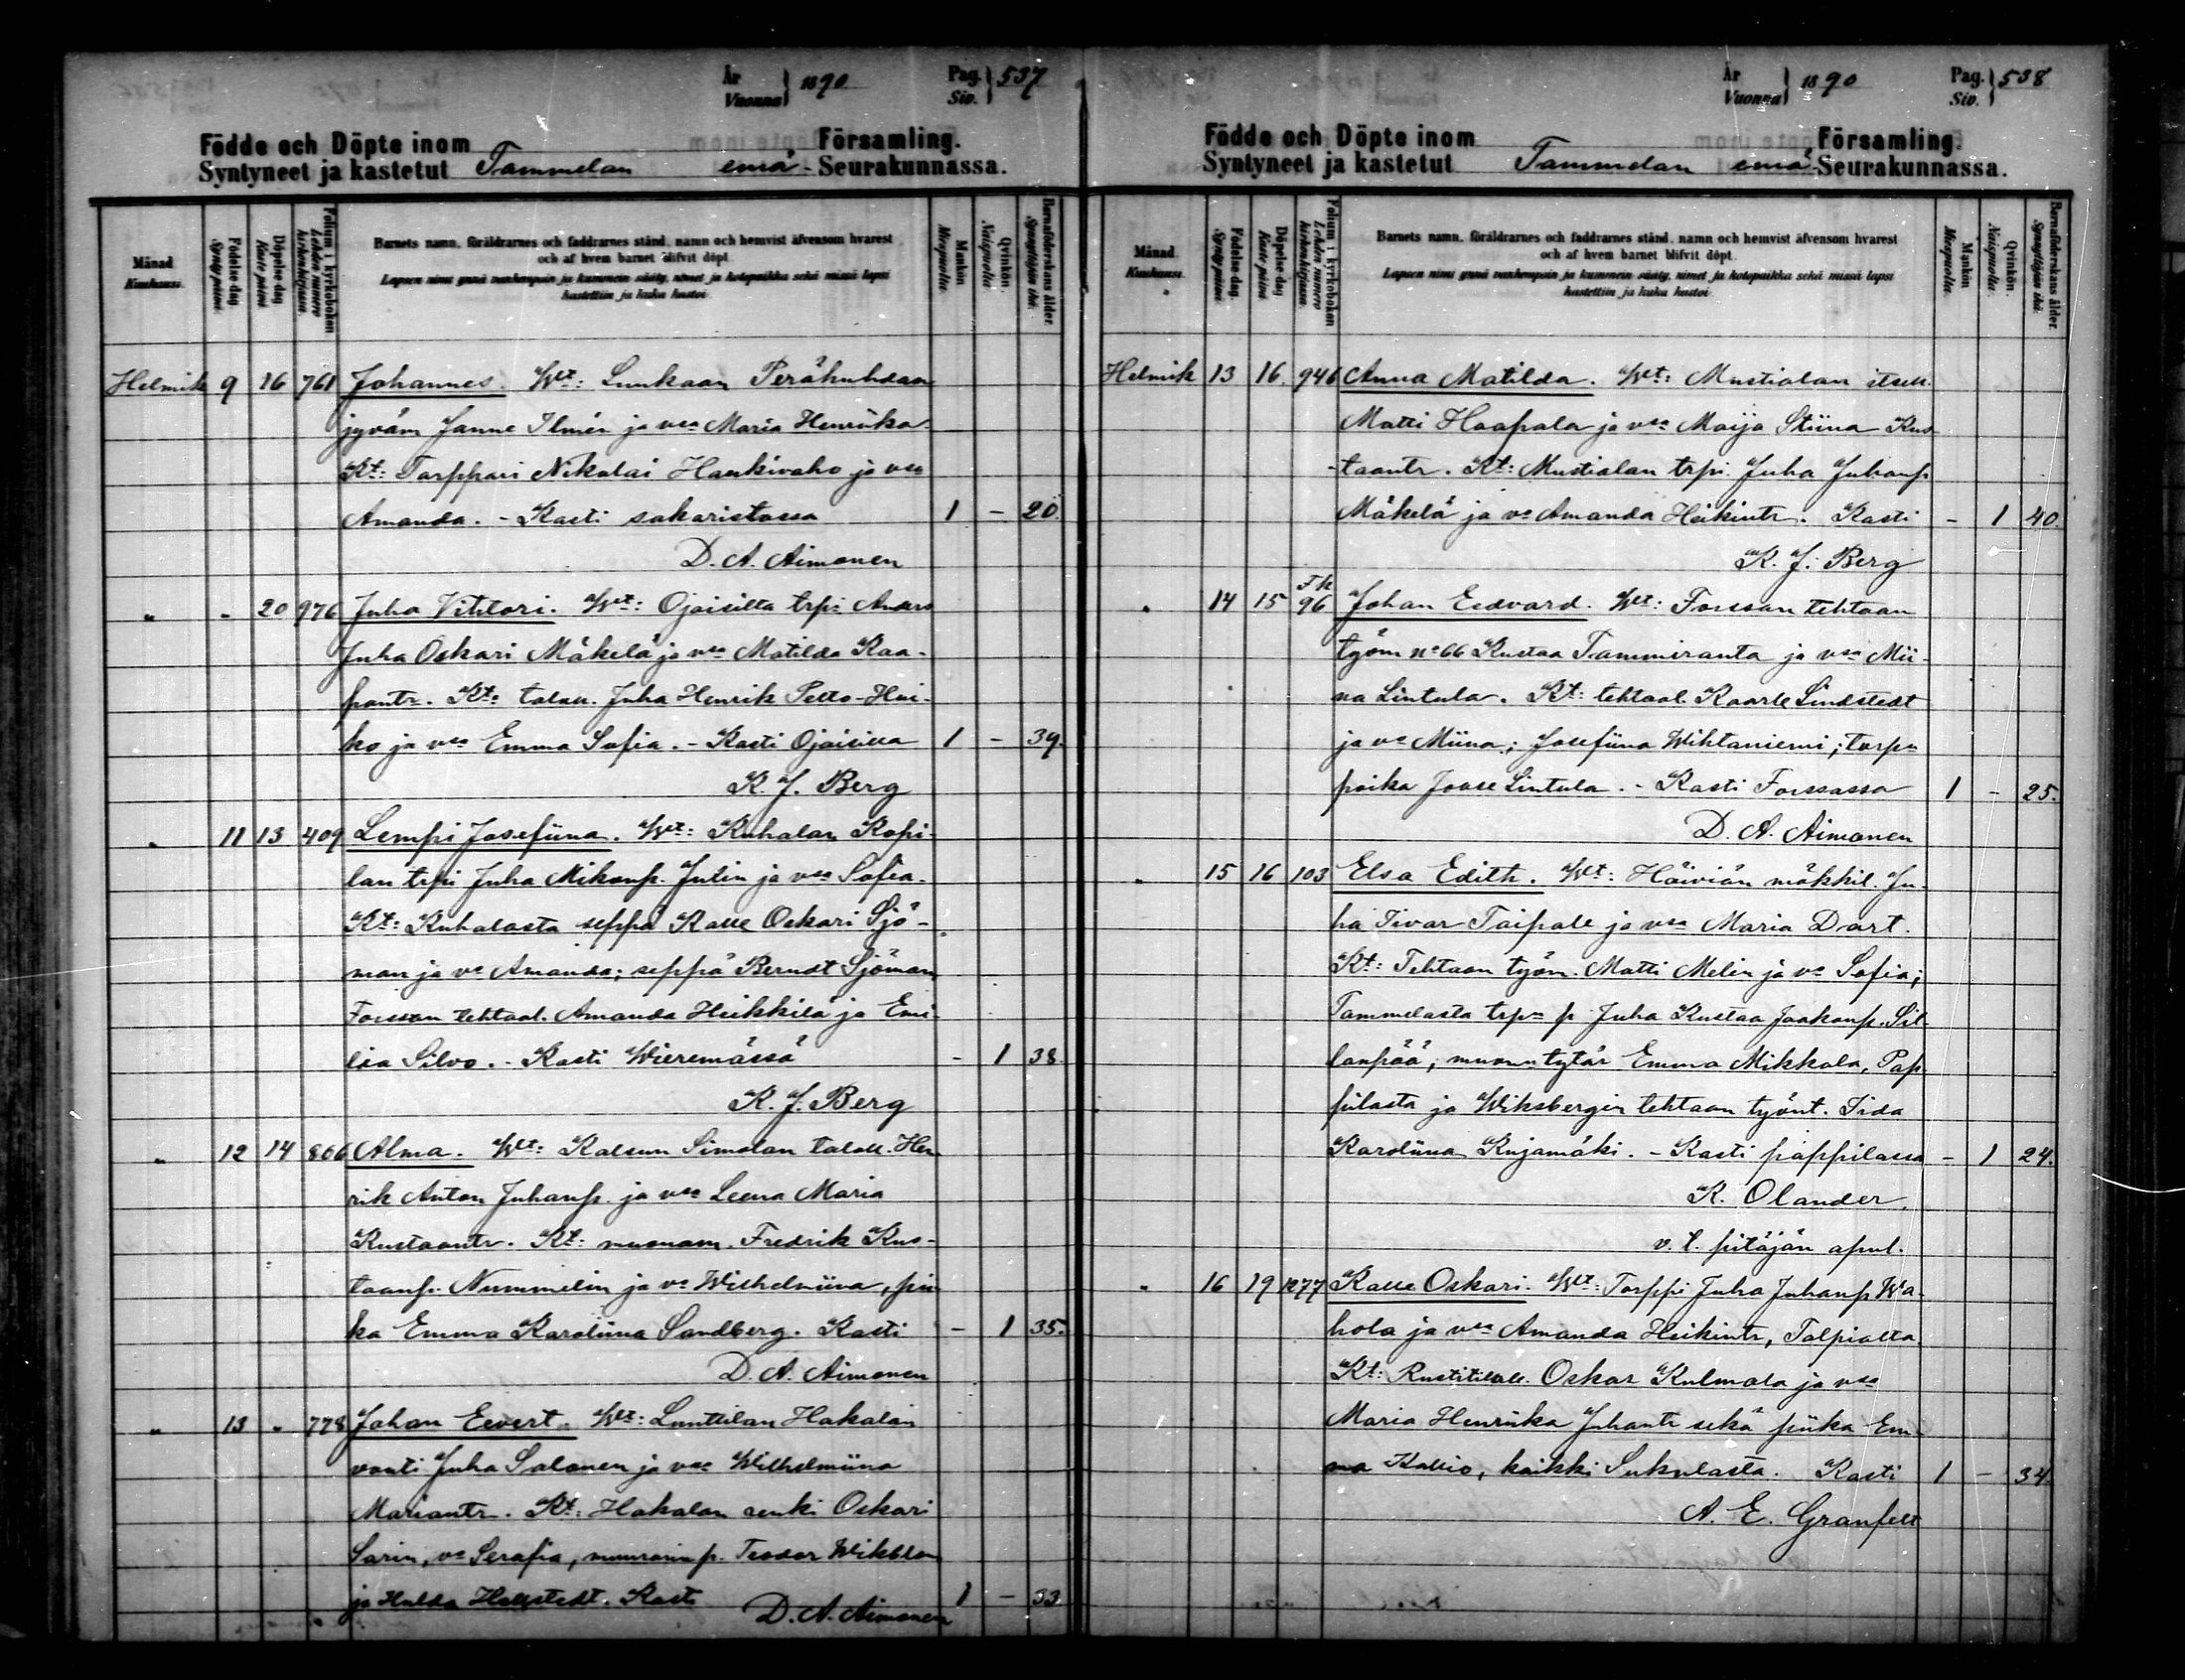 År 1890 Pag. 537
Vuonna Siv.
Födde och Döpte inom Församling.
Syntyneet ja kastetut Tammelan emä-Seurakunnassa.
Månad Kuukausi. Födelse dag. Syntypäivä. Döpelse dag Kaste päivä Folium i kyrkoboken Lehden numero kirkonkirjassa. Barnets namn, föräldrarnes och faddrarnes stånd, namn och hemvist äfvensom hvarest Mankön Miespuolia. Qvinkön. Naispuolia. Barnaföderskans ålder. Synnyttäjän ikä.
och af hvem barnet blifvit döpt.
Lapsen nimi ynnä vanhempain ja kummein sääty, nimet ja kotopaikka sekä missä lapsi
kastettiin ja kuka kastoi.
Helmik 9 16 761 Johannes. Wt: Lunkaan Peräkuhdan
jyväm Janne Ilmén ja vsa Maria Henriika.
Kt: Torppari Nikolai Hankivaho ja vsa
Amanda. - Kasti sakaristossa 1 - 20.
D. A. Aimonen
" " 20 976 Juha Vihtori. Wt: Ojaisilta trpi Anders
Juha Oskari Mäkelä ja vsa Matilda Kaa-
pontr. Kt: talon. Juha Henrik Pelto-Hui-
ko ja vsa Emma Sofia. - Kasti Ojaisilla 1 - 39.
K. J. Berg
" 11 13 409 Lempi Josefiina. Wt: Kuhalan Kopi-
lan trpi Juha Mikonp. Julin ja vsa Sofia.
Kt: Kuhalasta seppä Kalle Oskari Sjö-
man ja vo Amanda; seppä Berndt Sjöman
Forssan tehtaal. Amanda Heikkilä ja Emi-
lia Silvo. - Kasti Wieremässä - 1 38.
K. J. Berg
" 12 14 806 Alma. Wt: Kalsun Simolan taloll. Hen-
rik Anton Juhanp. ja vsa Leena Maria
Kustaantr. Kt: muonam. Fredrik Kus-
taanp. Nummelin ja vo Wilhelmiina, pii-
ka Emma Karoliina Sandberg. Kasti - 1 35.
D. A. Aimonen
" 13 " 778 Johan Eevert. Wt: Lunttilan Hakalan
vouti Juha Salonen ja vsa Wilhelmiina
Mariantr. Kt: Hakalan renki Oskari
Sarin, vo Serafia, muurarin p. Teodor Wikblom
ja Hulda Hallstedt. Kasti 1 - 33
D. A. Aimonen
År 1890 Pag. 538
Vuonna Siv.
Födde och Döpte inom Församling.
Syntyneet ja kastetut Tammelan emä-Seurakunnassa.
Månad Kuukausi. Födelse dag. Syntypäivä. Döpelse dag Kaste päivä Folium i kyrkoboken Lehden numero kirkonkirjassa. Barnets namn, föräldrarnes och faddrarnes stånd, namn och hemvist äfvensom hvarest Mankön Miespuolia. Qvinkön. Naispuolia. Barnaföderskans ålder. Synnyttäjän ikä.
och af hvem barnet blifvit döpt.
Lapsen nimi ynnä vanhempain ja kummein sääty, nimet ja kotopaikka sekä missä lapsi
kastettiin ja kuka kastoi
Helmik 13 16. 946 Anna Matilda. Wt: Mustialan itsell.
Matti Haapala ja vsa Maija Stiina Kus-
-taantr. Kt: Mustialan trpi Juha Juhanp.
Mäkelä ja vo Amanda Heikintr. Kasti - 1 40.
K. J. Berg
" 14 15 Fk 96 Johan Eedvard. Wt: Forssan tehtaan
työm no 66 Kustaa Tammiranta ja vsa Mii-
na Lintula. Kt: tehtaal. Kaarle Lindstedt
ja vo Miina; Josefiina Wihtaniemi; torpn
poika Joose Lintula. - Kasti Forssassa 1 - 25.
D. A. Aimonen
" 15 16 103 Elsa Edith. Wt: Häiviän mäkkil. Ju-
ha Iivar Taipale ja vsa Maria Dart.
Kt: Tehtaan työm. Matti Melin ja vo Sofia;
Tammelasta trpn p. Juha Kustaa Jaakonp. Sil-
lanpää; muonn tytär Emma Mikkola, Pap-
pilasta ja Wiksbergin tehtaan työnt. Iida
Karoliina Kujamäki. - Kasti pappilassa - 1 24.
K. Olander,
v. t. pitäjän apul.
" 16 19 1277 Kalle Oskari. Wt: Torppi Juha Juhanp Wa-
hola ja vsa Amanda Heikintr, Talpialta
Kt: Rustitilall. Oskar Kulmala ja vsa
Maria Henriika Juhantr sekä piika Em-
ma Kallio, kaikki Sukulasta. Kasti 1 - 34.
A. E. Granfelt